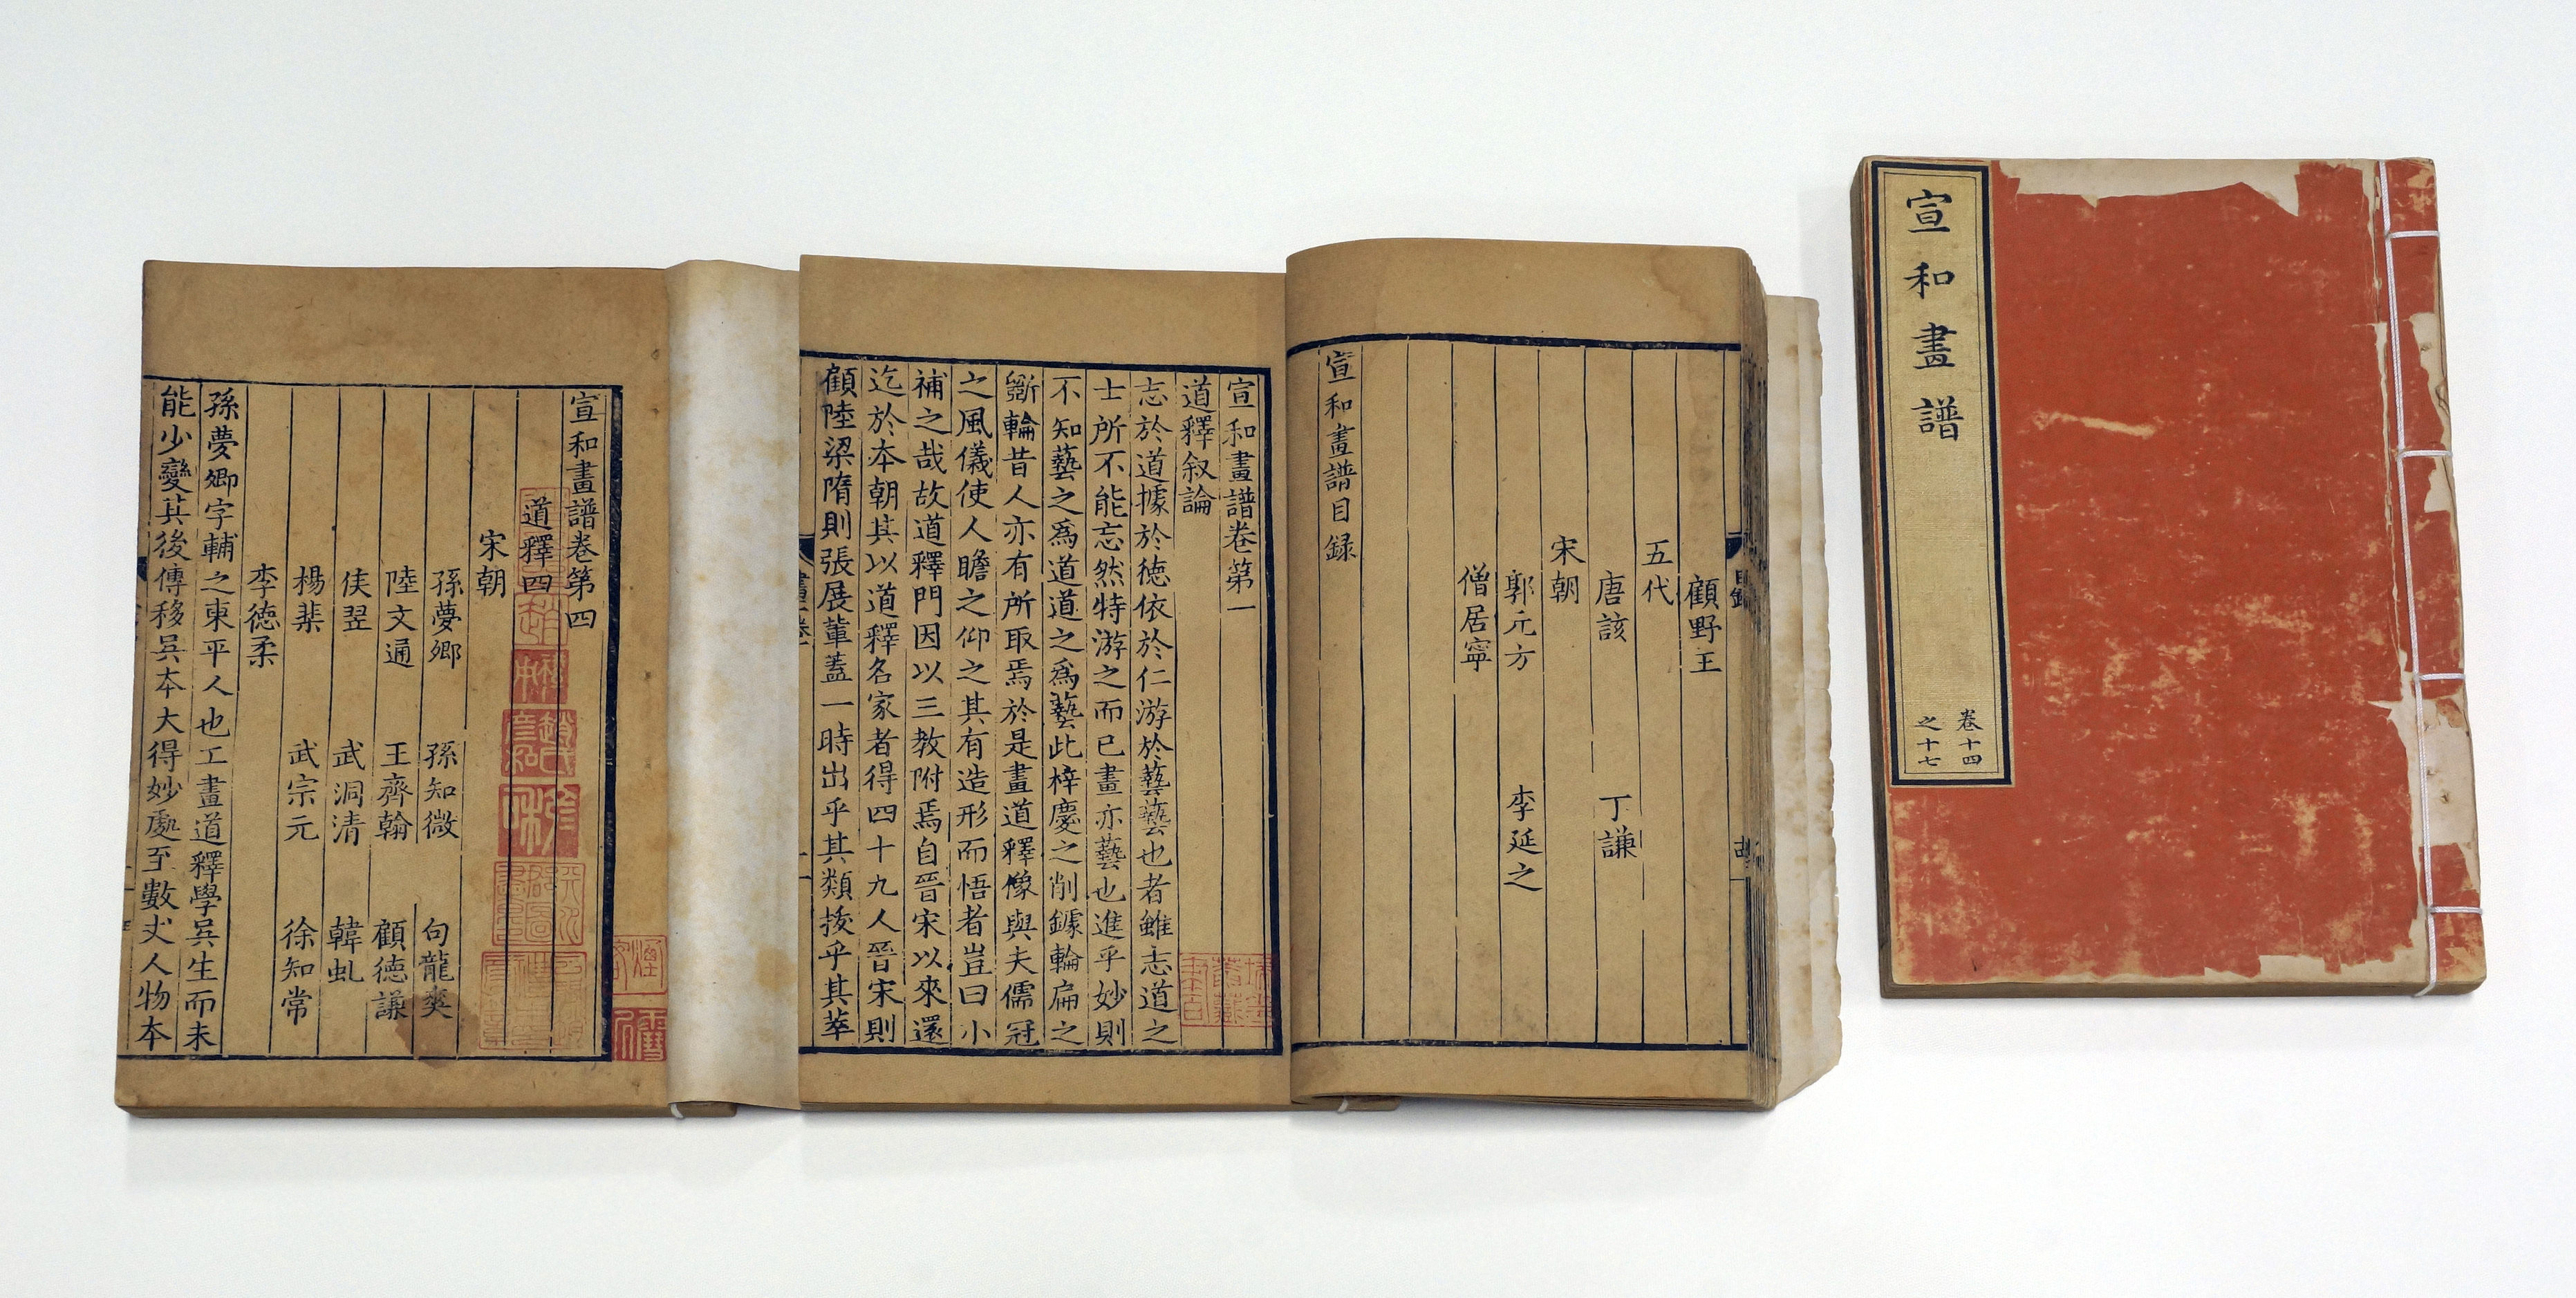 宣和畫譜
卷十四
之十七
顧野王
五代
唐該 丁謙
宋朝
郭元方 李延之
僧居寧
宣和畫譜目録
宣和畫譜卷第一
道釋叙論
志於道據於徳依於仁游於藝藝也者雖志道之
士所不能忘然特游之而已畫亦藝也進乎妙則
不知藝之爲道道之爲藝此梓慶之削鐻輪扁之
斵輪昔人亦有所取焉於是畫道釋像與夫儒冠
之風儀使人瞻之仰之其有造形而悟者豈曰小
補之哉故道釋門因以三教附焉自晉宋以來還
迄於本朝其以道釋名家者得四十九人晉宋則
顧陸梁隋則張展軰蓋一時出乎其類拔乎其萃
宣和畫譜卷第四
道釋四
宋朝
孫夢卿 孫知微 句龍爽
陸文通 王齊翰 顧徳謙
侯翌 武洞清 韓虬
楊棐 武宗元 徐知常
李徳柔
孫夢卿字輔之東平人也工畫道釋學吳生而未
能少變其後傳移吳本大得妙處至數丈人物本